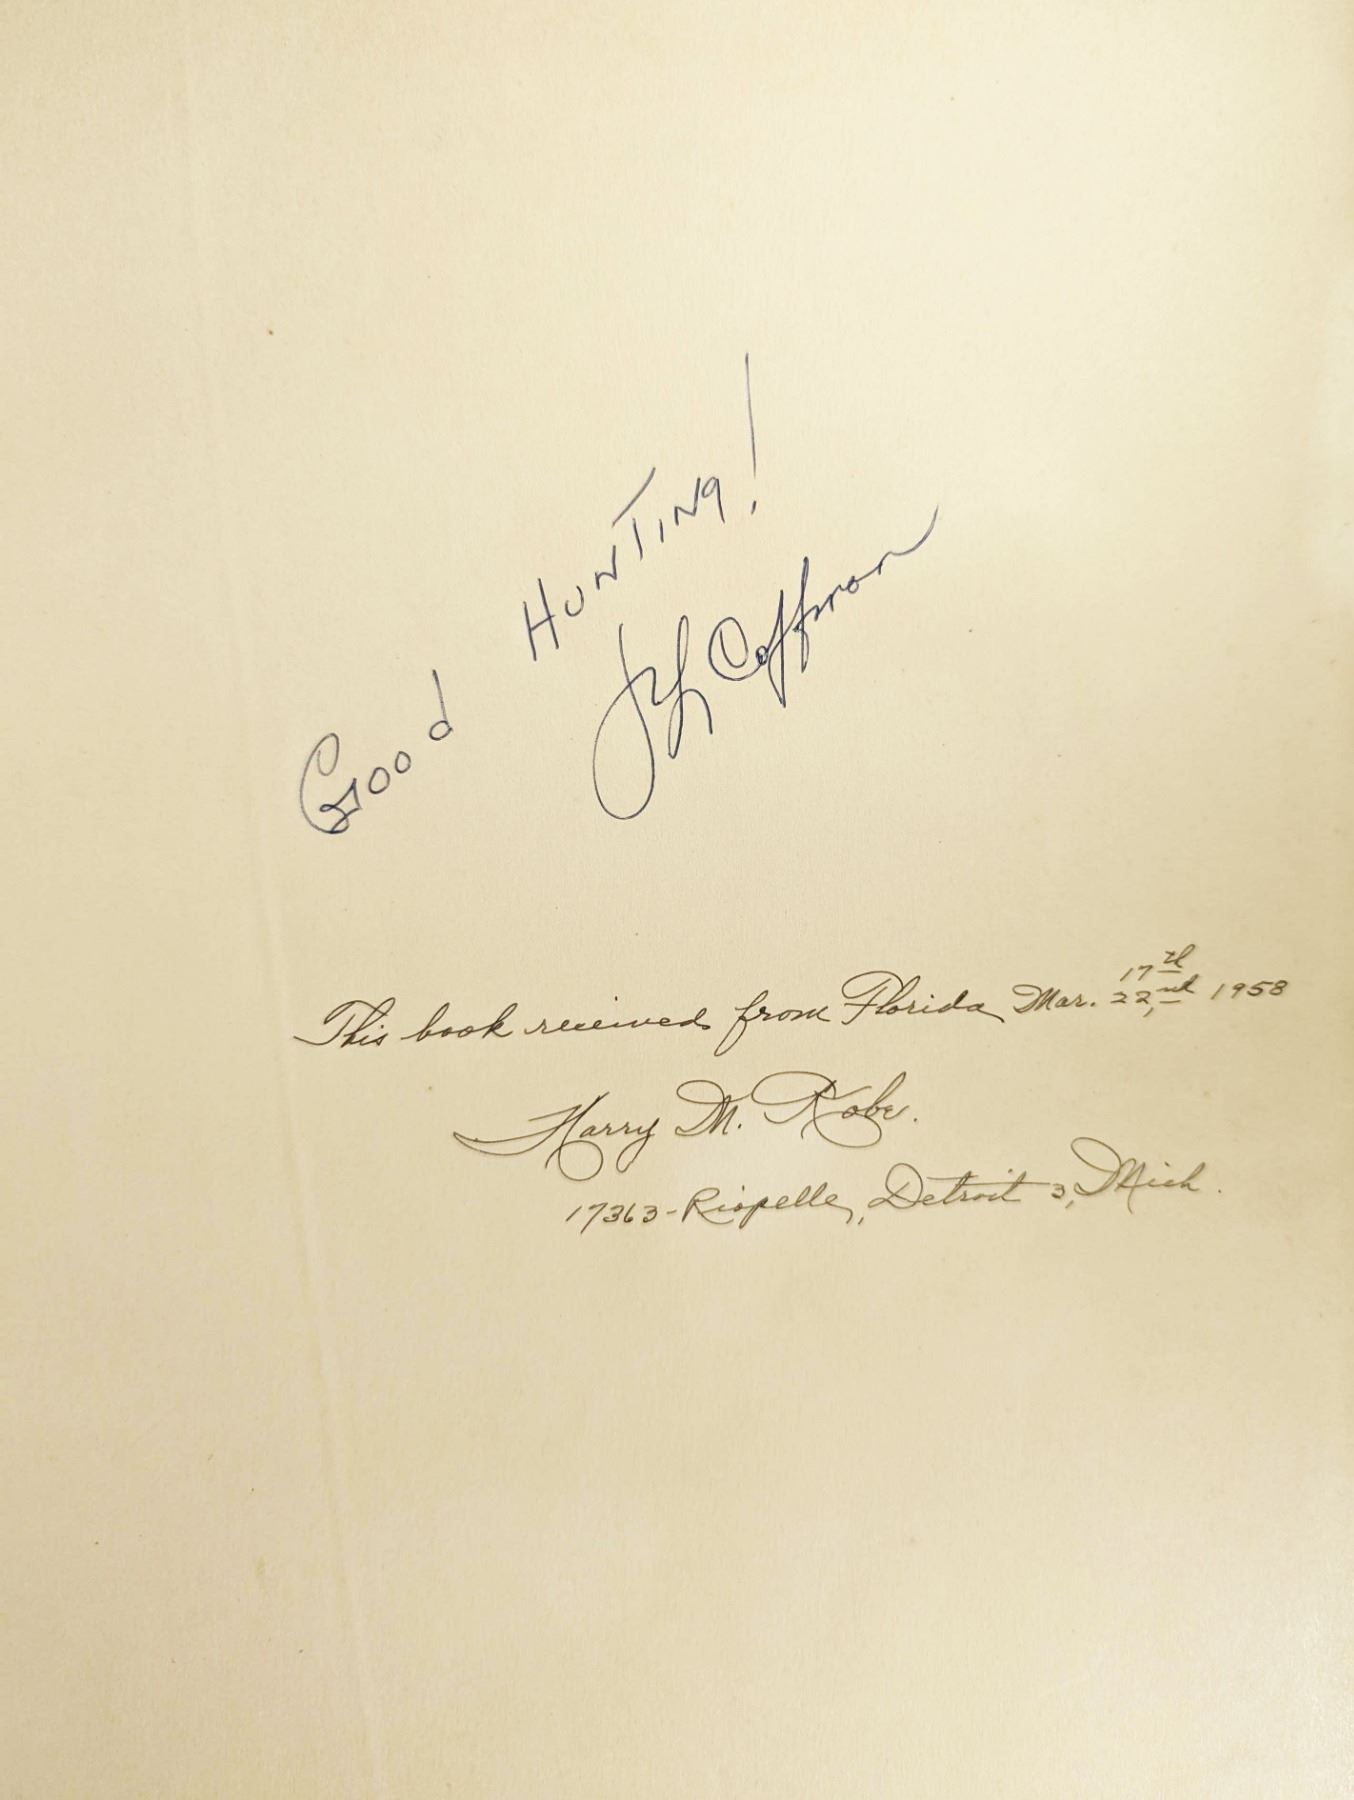 Good HUNTING!
F L Coffman
17th
This book received from Florida Mar. 22,nd 1958
Harry M. Robe.
17363-Riopelle, Detroit 3, Mich.